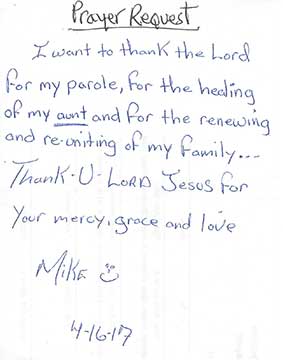 Prayer Request
I want to thank the Lord
for my parole, for the healing
of my aunt and for the renewing
and re-uniting of my family...
Thank-U-Lord Jesus for
Your mercy, grace and love
Mike
4-16-17